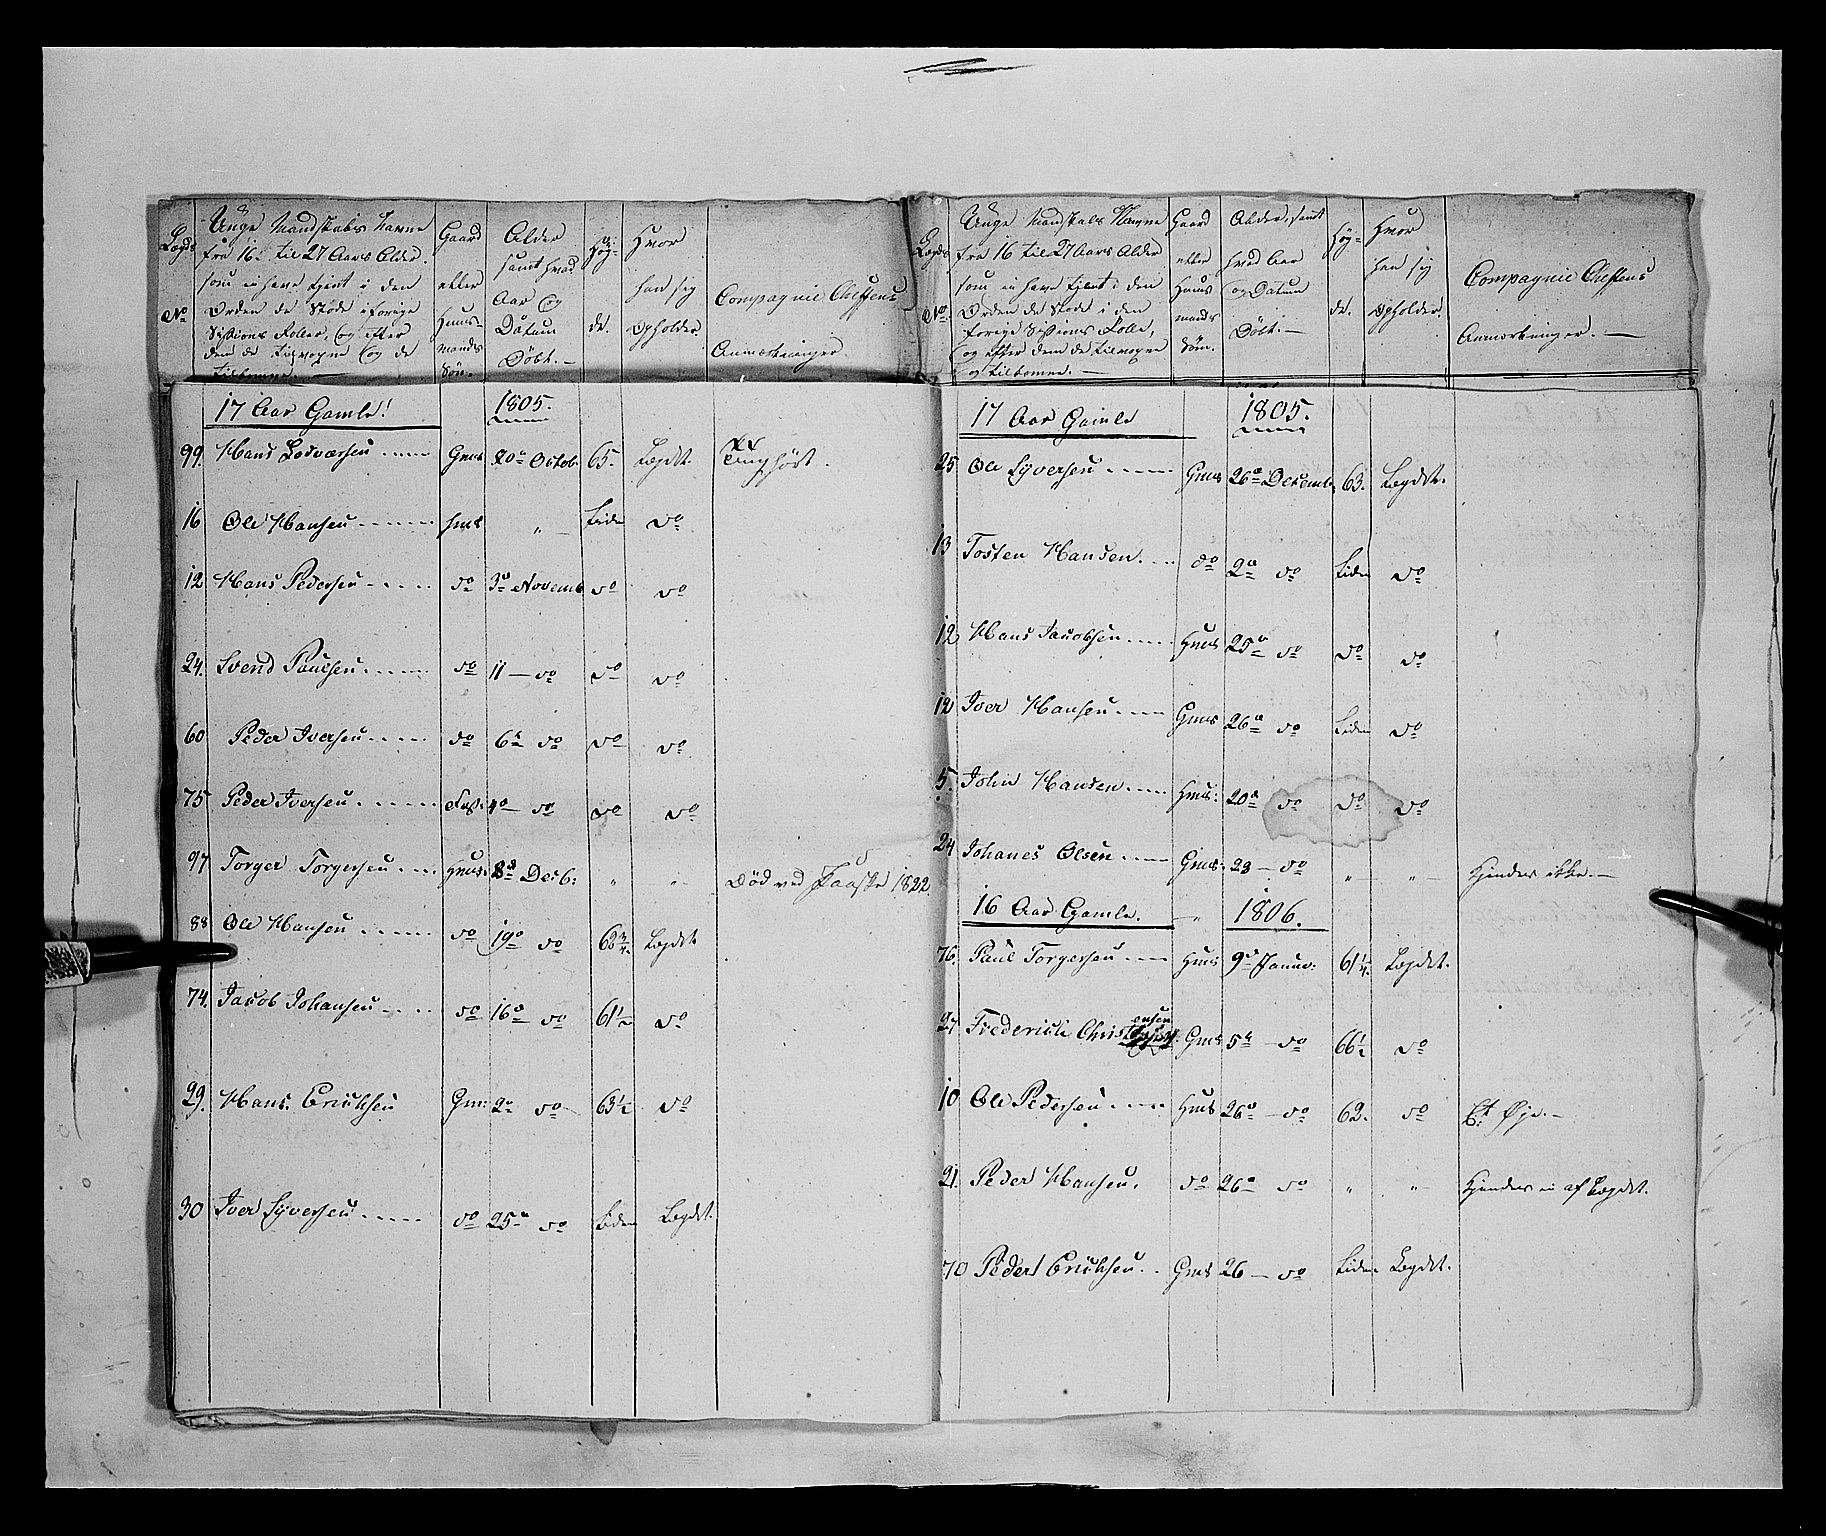 Lægds No
Unge Mandskabs Navne fra 16 til 27 Aars Alder som ei have tjent i den Orden de stode i forige Sessions Roller, og efter dem de tilvoxne og de tilkomne. —
Gaard eller Huus- mands Søn.
Alder samt hvad Aar og Datum Döbt. —
Høj- de.
Hvor han sig opholder
Compagnie Cheffens Anmærkninger
17 Aar Gamle! 1805.
99. Hans Gms 20de Octob. 65. Lægdet.
16 Ole Hansen hms „ Liden do
12 Hans Pedersen do 3de Novemb do do
24. Svend Paulsen do 11 — do do do
60 Peder Iversen do 6te do do do
75 Peder Iversen 4de — do do do
97 Torger Torgersen Hms. Decb: „ „ Död ved Paaske 1822.
88 Ole Hansen do 19de do 62¾. Lægdet
74. Jacob Johansen do 16de do 61½ do
29. Hans Erichsen Gm: 2de do 63½ do
30 Iver Syversen do 25de do Liden Lægdet.
Lægds No.
Unge Mandskabs Navne fra 16 til 27 Aars Alder som ei have tjent i den Orden de stode i den forige Sessions Rolle, og efter dem de tilvoxne og tilkomne. —
Gaard eller Huus mands Søn.
Alder, samt hvad Aar og Datum Döbt. —
Høj- de.
Hvor han sig opholder.
Compagnie Cheffens Anmærkninger. —
17 Aar Gamle 1805.
25 Ole Syversen Gms 26de Decemb. 63. Lægdet.
13 Tosten Hansen do 2de do Liden do
12 Hans Jacobsen Hms 25de do do do
12 Iver Hansen Gms 26de do Liden do
5. John Hansen Hms. 20de do do do
24 Johanes Olsen Gms. 23 — do „ „ Kjendes ikke. —
16 Aar Gamle. „ 1806.
76. Paul Torgersen Hms 9de Janu: 61¼. Lægdet.
27 Frederich Christensen Gms 5te — do 66½ do
10 Ole Pedersen Hms 26de — do 62. do Et Øje. —
21. Peder Hansen. do 26de do „ „ Kjendes ei af Lægdet.
70 Peder Erichsen. Gms 26 — do Liden Lægdet.